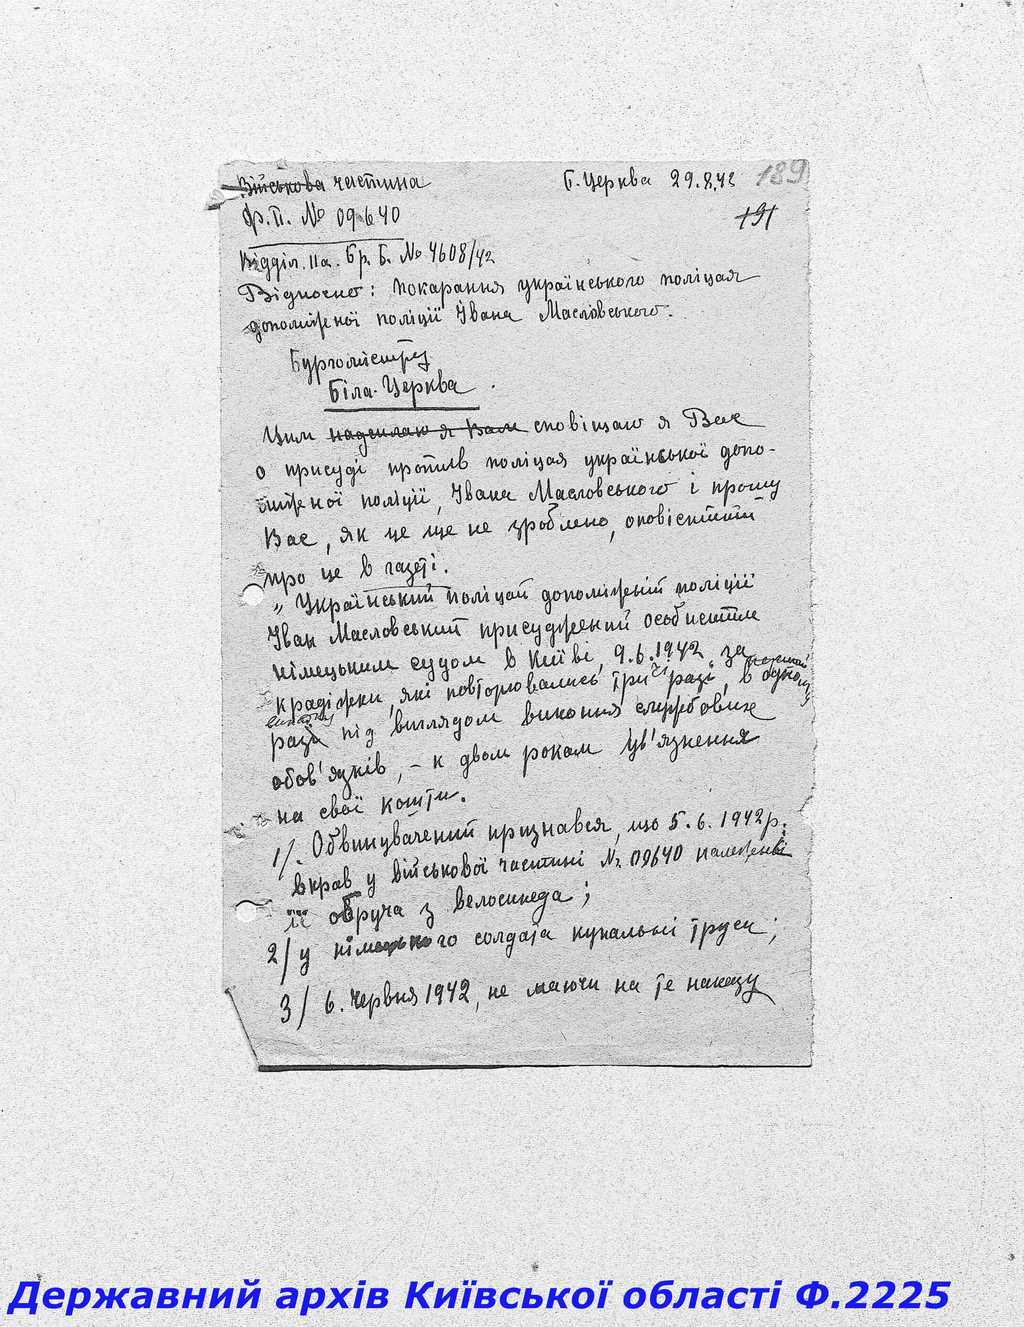 Військова частина
Б. Церква 29.8.42
189
191
Ф.П. № 09640
Відділ. IIа. Бр. Б. № 4608/42
Відносно: покарання українського поліцая
допоміжної поліції Івана Масловського.
Бургомістру
Біла-Церква.
Цим надсилаю я Вам сповіщаю я Вас
о присуді против поліцая української допо-
міжної поліції, Івана Масловського і прошу
Вас, як це ще не зроблено, оповістити
про це в газеті.
„Український поліцай допоміжній поліції
Іван Масловський присуджений особистим
німецьким судом в Київі, 9.6.1942, за
крадіжки, які повторювались три рази, в одному
разі під виглядом виконня службових
обов'язків, – к двом рокам ув'язнення
на свої кошти.
1/. Обвинувачений признався, що 5.6.1942 р.
вкрав у військової частині № 09640 належенві
її обруча з велосипеда;
2/ у німецького солдата купальні труси;
3/ 6. червня 1942, не маючи на те наказу
Державний архів Київської області Ф.2225